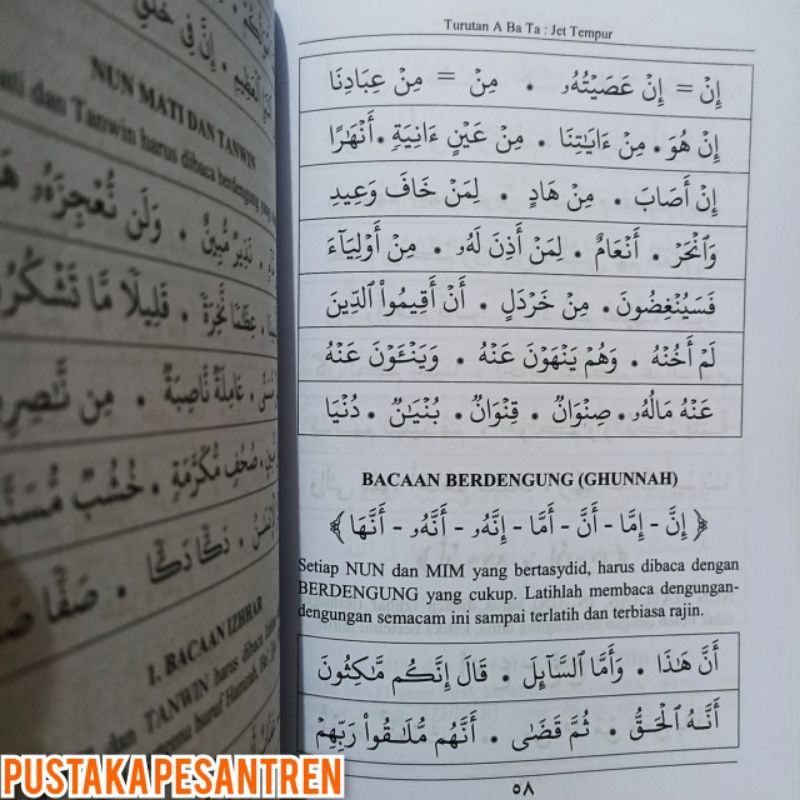 Turutan A Ba Ta : Jet Tempur
إِنۡ = إِنۡ عَصَيۡتُهُۥ . مِنۡ = مِنۡ عِبَادِنَا
إِنۡ هُوَ . مِنۡ ءَايَٰتِنَا . مِنۡ عَيۡنٍ ءَانِيَةٖ . أَنۡهَٰرٗا
إِنۡ أَصَابَ . مِنۡ هَادٍ . لِمَنۡ خَافَ وَعِيدِ
وَٱنۡحَرۡ . أَنۡعَامٌ . لِمَنۡ أَذِنَ لَهُۥ . مِنۡ أَوۡلِيَآءَ
فَسَيُنۡغِضُونَ . مِنۡ خَرۡدَلٍ . أَنۡ أَقِيمُواْ ٱلدِّينَ
لَمۡ أَخُنۡهُ . وَهُمۡ يَنۡهَوۡنَ عَنۡهُ . وَيَنۡـَٔوۡنَ عَنۡهُ
عَنۡهُ مَالُهُۥ . صِنۡوَانٌ . قِنۡوَانٌ . بُنۡيَٰنٌ . دُنۡيَا
BACAAN BERDENGUNG (GHUNNAH)
﴿ إِنَّ - إِمَّا - أَنَّ - أَمَّا - إِنَّهُۥ - أَنَّهُۥ - أَنَّهَا ﴾
Setiap NUN dan MIM yang bertasydid, harus dibaca dengan
BERDENGUNG yang cukup. Latihlah membaca dengungan-
dengungan semacam ini sampai terlatih dan terbiasa rajin.
أَنَّ هَٰذَا . وَأَمَّا ٱلسَّآئِلَ . قَالَ إِنَّكُم مَّٰكِثُونَ
أَنَّهُ ٱلۡحَقُّ . ثُمَّ قَضَىٰ . أَنَّهُم مُّلَٰقُواْ رَبِّهِمۡ
٥٨
إِنَّ فِي خَلۡقِ
ٱلۡعَظِيمِ
NUN MATI DAN TANWIN
dan Tanwin harus dibaca berdengung
نَذِيرٌ مُّبِينٌ . وَلَن نُّعۡجِزَهُۥ
عِظَٰمٗا نَّخِرَةٗ . قَلِيلٗا مَّا تَشۡكُرُ
عَامِلَةٌ نَّاصِبَةٌ . مِن نَّٰصِرِ
صُحُفٖ مُّكَرَّمَةٖ . خُشُبٌ مُّسَنَّ
دَكّٗا دَكّٗا . صَفّٗا صَ
1. BACAAN IZHHAR
dan TANWIN harus dibaca
huruf Hamzah, Ha'
PUSTAKAPESANTREN